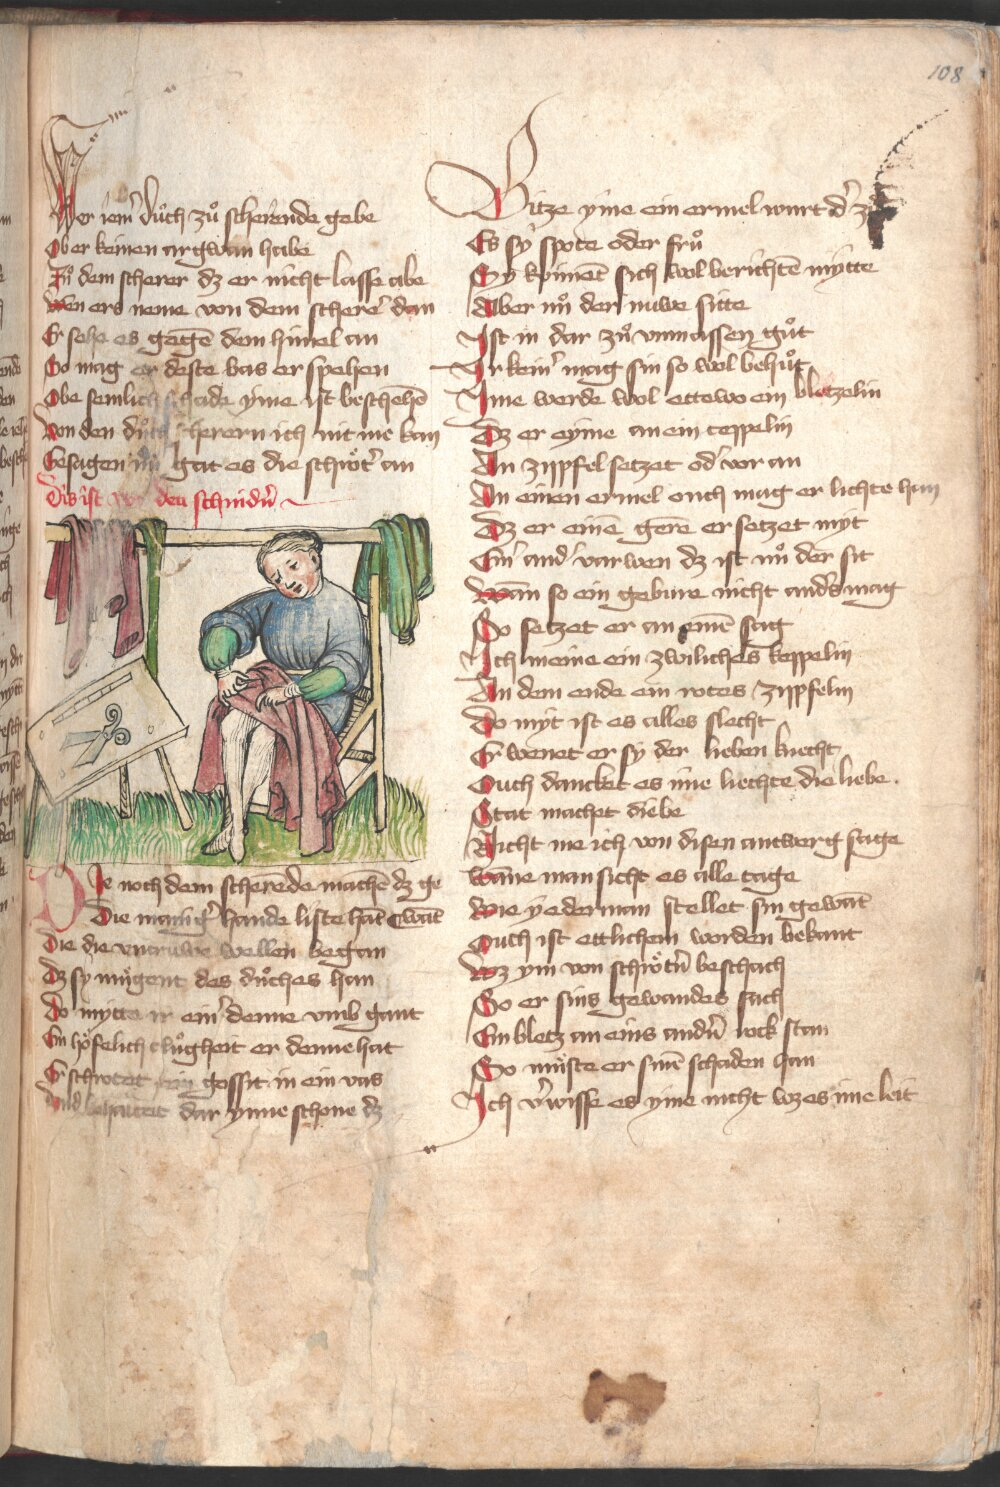 108
Wer iem̄ důch zů scherende gebe
Ob er keinen argwan habe
Zů dem scherer dz er nicht lasse abe
Wen ers neme von dem scherer̄ dan
Er sehe es gegē dem himel an
So mag er deste bas erspehen
Obe semlich schade yme ist beschehē
Von den důch scherern ich nit me kan
Gesagen nů gat es die schrȯter̄ an
Dis ist von den schnidern̄
Die noch dem scherende machē dz ge
Die maniḡ hande liste hāt wāt
Die die vntruwe wellen began
Dz sy mügent des důches han
So mytte ir ein̄ denne vmb gant
Ein hȯfelich clůgheit er denne hat
Er schrotet ein gossit in ein vas
Vnd behaltet dar ynne schone dz
Bitze yme ein ermel wurt d̄
Es sy spote oder frů
Sy kȯment sich wol berichtē mytte
Aber nů der nuwe sitte
Ist in dar zů vnmassen gůt
Ir kein̄ mag sin so wol behůt
Yme werde wol ettewo ein bletzelin
Dz er eyme an ein ceppelin
An zippfel setzet od̄ vor an
An einen ermel ouch mag er lichte han
Dz er einē gerē er setzet myt
Ein̄ and̄ varwen dz ist nů der sit
Wān so ein gebure nicht anders mag
So setzet er an einē sag
Ich meine ein zwiliches keppelin
An dem ende ein rotes zippfelin
Do myt ist es alles slecht
Er wenet er sy der lieben knecht
Ouch dancket es ime liechte die liebe
Stat machet diebe
Nicht me ich von disen antwerg sage
Wāne man sicht es alle tage
Wie yederman stellet sin gewāt
Ouch ist ettlichem worden bekant
Waz ym von schrȯtern̄ beschach
So er sins gewandes sach
Ein bletz an eins andern̄ rock stan
So můste er sinē schaden han
Ich v̄wisse es yme nicht wz es ime leit